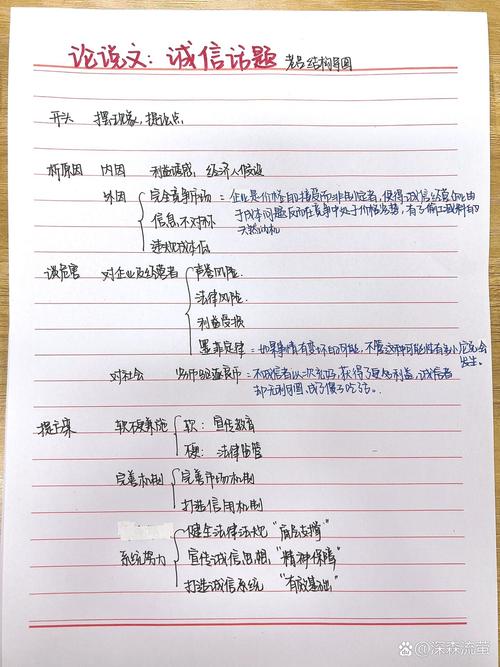 论说文:诚信话题 老吕结构导图
开头 摆现象,提论点
析原因 内因 利益诱惑,经济人假设
外因 完全竞争市场:企业是价格的接受而非制定者,使得诚信经营企业由
于成本问题反而在竞争中处于价格劣势,有了偷工减料的
天然动机
信息不对称
违规成本低
谈危害 对企业及经营者 声誉风险
法律风险
利益受损
墨菲定律:如果事情有变坏的可能,不管这种可能性有多小,它总会
发生。
对社会 劣币驱逐良币:不诚信者以次充好,获得了更多利益,诚信者
却无利可图,成了傻子吃亏。
提方案 软硬兼施 软:宣传教育
硬:法律监管
完善机制 完善市场机制
打造信用机制
系统努力 健全法律法规"底层支撑"
宣传诚信思想"精神保障"
打造诚信系统"有效基础"
百家号/深森流萤